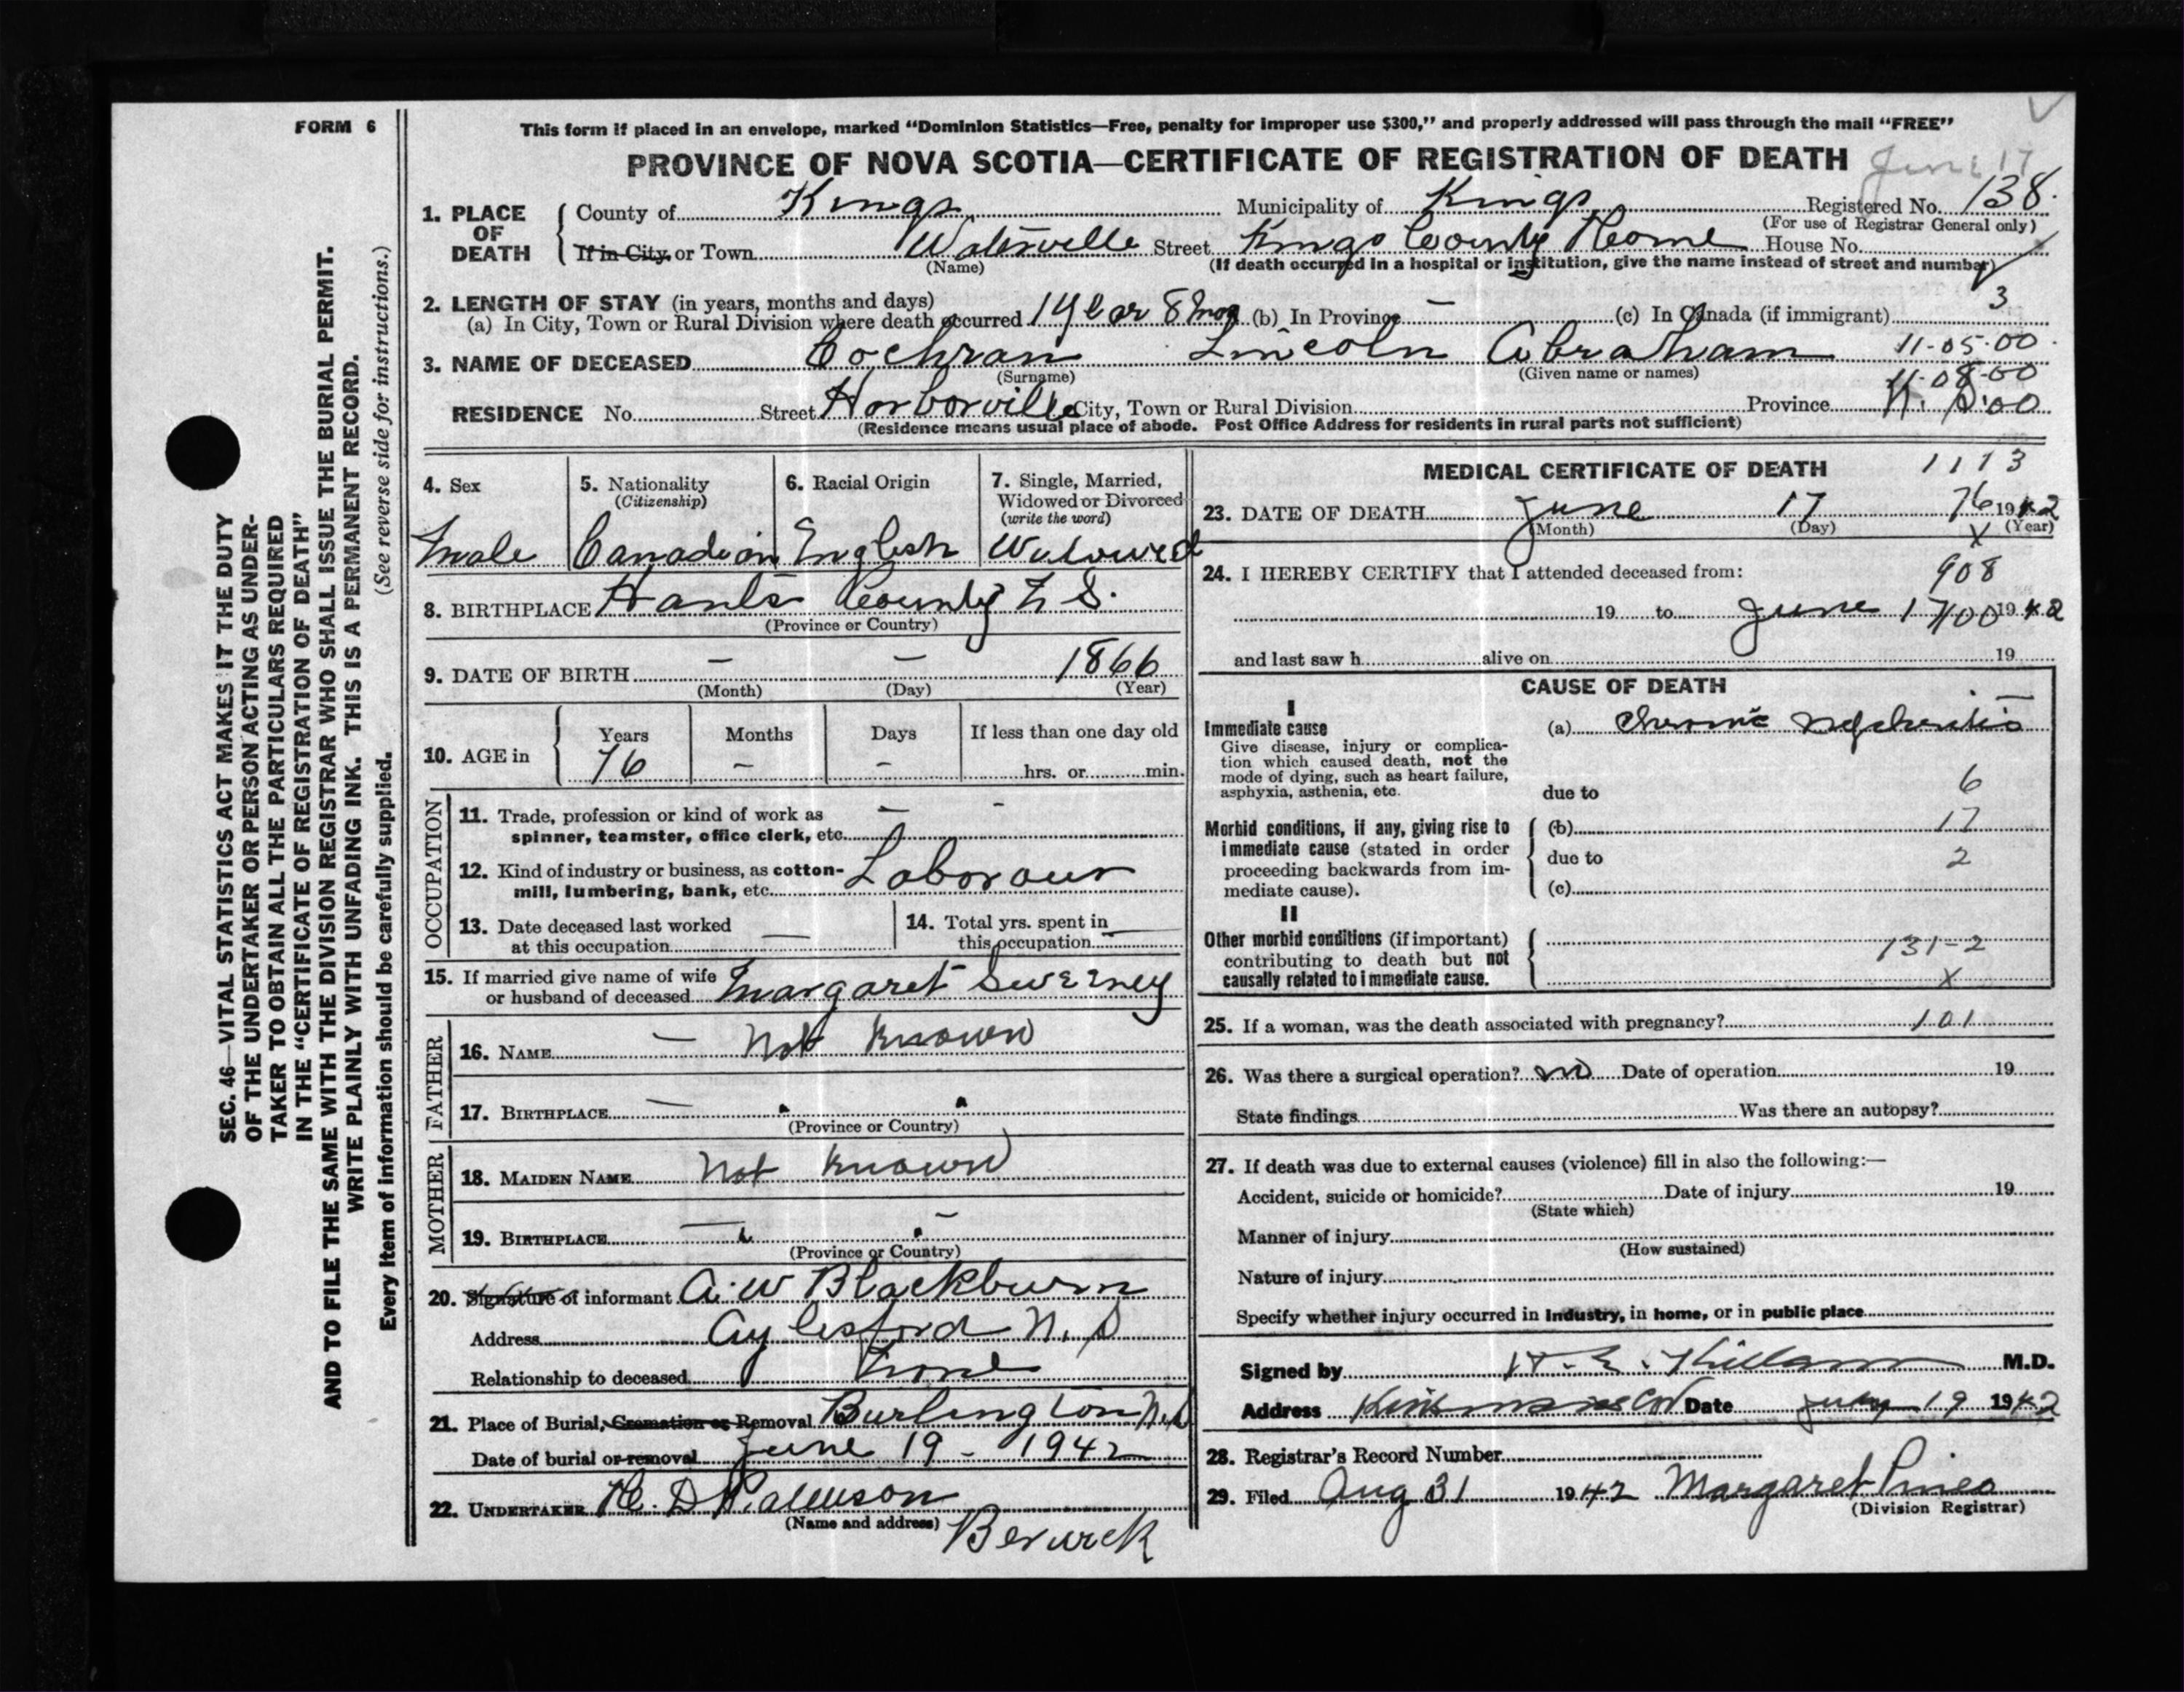 FORM 6
This form if placed in an envelope, marked “Dominion Statistics—Free, penalty for improper use $300,” and properly addressed will pass through the mail “FREE”
PROVINCE OF NOVA SCOTIA—CERTIFICATE OF REGISTRATION OF DEATH June 17
1. PLACE OF DEATH County of Kings Municipality of Kings Registered No. 138.
(For use of Registrar General only)
If in City, or Town Waterville Street Kings County Home House No.
(Name) (If death occurred in a hospital or institution, give the name instead of street and number)
2. LENGTH OF STAY (in years, months and days)
(a) In City, Town or Rural Division where death occurred 1 year 8 mos (b) In Province — (c) In Canada (if immigrant) 3
3. NAME OF DECEASED Cochran Lincoln Abraham 11-05-00
(Surname) (Given name or names) 11-08-00
RESIDENCE No. Street Harborville City, Town or Rural Division Province N.S. 00
(Residence means usual place of abode. Post Office Address for residents in rural parts not sufficient)
4. Sex Male
5. Nationality (Citizenship) Canadian
6. Racial Origin English
7. Single, Married, Widowed or Divorced (write the word) Widowed
8. BIRTHPLACE Hants County N S.
(Province or Country)
9. DATE OF BIRTH — — 1866
(Month) (Day) (Year)
10. AGE in Years Months Days If less than one day old
76 — — hrs. or min.
OCCUPATION
11. Trade, profession or kind of work as spinner, teamster, office clerk, etc. — -
12. Kind of industry or business, as cotton-mill, lumbering, bank, etc. Laborour
13. Date deceased last worked at this occupation —
14. Total yrs. spent in this occupation —
15. If married give name of wife or husband of deceased Margaret Sweeney
FATHER
16. NAME — Not Known
17. BIRTHPLACE — " "
(Province or Country)
MOTHER
18. MAIDEN NAME Not Known
19. BIRTHPLACE — " "
(Province or Country)
20. Signature of informant A. W Blackburn
Address Aylesford N. S
Relationship to deceased None
21. Place of Burial, Cremation or Removal Burlington N.S
Date of burial or removal June 19 - 1942
22. UNDERTAKER
(Name and address) Berwick
MEDICAL CERTIFICATE OF DEATH 1113
23. DATE OF DEATH June 17 76 1942
(Month) (Day) X (Year)
24. I HEREBY CERTIFY that I attended deceased from: 908
19 to June 17 100 1942
and last saw h alive on 19
CAUSE OF DEATH
I
Immediate cause (a) Chronic Nephritis
Give disease, injury or complication which caused death, not the mode of dying, such as heart failure, asphyxia, asthenia, etc.
due to 6
Morbid conditions, if any, giving rise to immediate cause (stated in order proceeding backwards from immediate cause).
(b) 17
due to 2
(c)
II
Other morbid conditions (if important) contributing to death but not causally related to immediate cause.
131-2
X
25. If a woman, was the death associated with pregnancy? 101
26. Was there a surgical operation? no Date of operation 19
State findings Was there an autopsy?
27. If death was due to external causes (violence) fill in also the following:—
Accident, suicide or homicide? Date of injury 19
(State which)
Manner of injury
(How sustained)
Nature of injury
Specify whether injury occurred in industry, in home, or in public place
Signed by H. E. Killam M.D.
Address Date 19 1942
28. Registrar's Record Number
29. Filed Aug 31 1942 Margaret Pineo
(Division Registrar)
SEC. 46—VITAL STATISTICS ACT MAKES IT THE DUTY
OF THE UNDERTAKER OR PERSON ACTING AS UNDER-
TAKER TO OBTAIN ALL THE PARTICULARS REQUIRED
IN THE “CERTIFICATE OF REGISTRATION OF DEATH”
AND TO FILE THE SAME WITH THE DIVISION REGISTRAR WHO SHALL ISSUE THE BURIAL PERMIT.
WRITE PLAINLY WITH UNFADING INK. THIS IS A PERMANENT RECORD.
Every item of information should be carefully supplied. (See reverse side for instructions.)